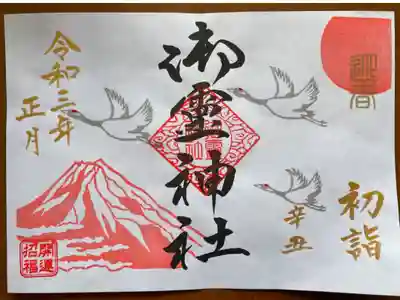 迎春
初詣
辛丑
御霊神社
令和三年
正月
開運
招福